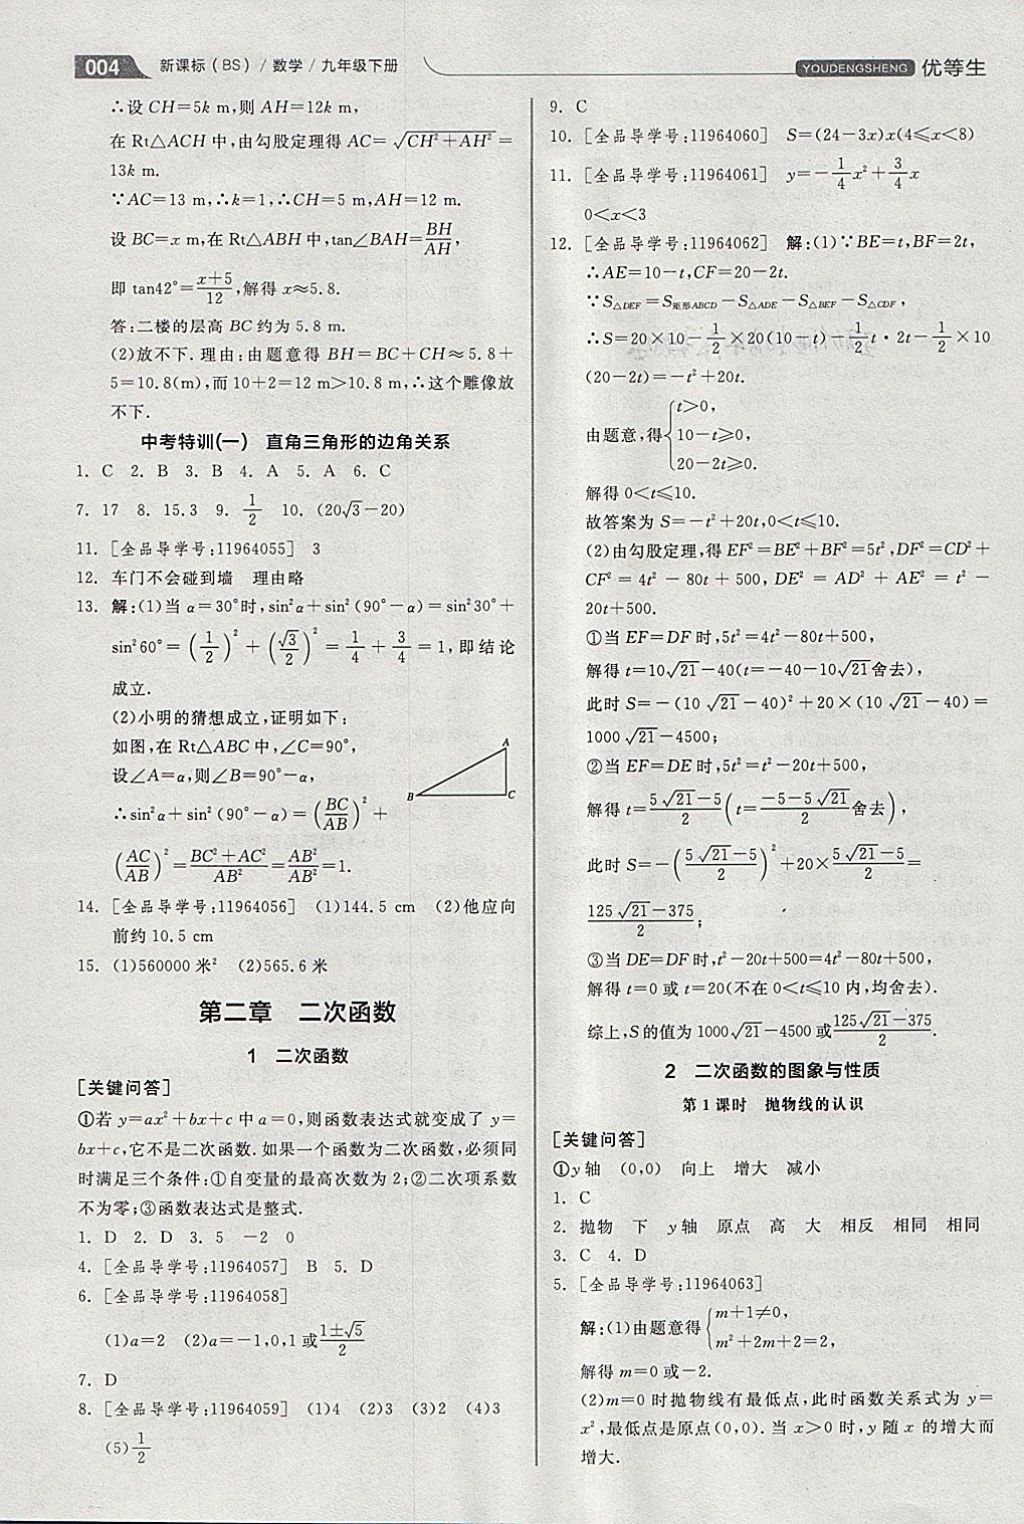 004 新课标(BS)/数学/九年级下册
YOUDENGSHENG 优等生
∴设CH=5k m,则AH=12k m,
在Rt△ACH中,由勾股定理得AC=√(CH²+AH²)=
13k m.
∵AC=13 m,∴k=1,∴CH=5 m,AH=12 m.
设BC=x m,在Rt△ABH中,tan∠BAH=BH/AH,
即tan42°=(x+5)/12,解得x≈5.8.
答:二楼的层高BC约为5.8 m.
(2)放不下.理由:由题意得BH=BC+CH≈5.8+
5=10.8(m),而10+2=12 m>10.8 m,∴这个雕像放
不下.
中考特训(一) 直角三角形的边角关系
1. C 2. B 3. B 4. A 5. A 6. C
7. 17 8. 15.3 9. 1/2 10. (20√3-20)
11. [全品导学号:11964055] 3
12. 车门不会碰到墙 理由略
13. 解:(1)当α=30°时,sin²α+sin²(90°-α)=sin²30°+
sin²60°=(1/2)²+(√3/2)²=1/4+3/4=1,即结论
成立.
(2)小明的猜想成立,证明如下:
如图,在Rt△ABC中,∠C=90°,
设∠A=α,则∠B=90°-α,
∴sin²α+sin²(90°-α)=(BC/AB)²+
(AC/AB)²=(BC²+AC²)/AB²=AB²/AB²=1.
A
B
C
14. [全品导学号:11964056] (1)144.5 cm (2)他应向
前约10.5 cm
15. (1)560000米² (2)565.6米
第二章 二次函数
1 二次函数
[关键问答]
①若y=ax²+bx+c中a=0,则函数表达式就变成了y=
bx+c,它不是二次函数.如果一个函数为二次函数,必须同
时满足三个条件:①自变量的最高次数为2;②二次项系数
不为零;③函数表达式是整式.
1. D 2. D 3. 5 -2 0
4. [全品导学号:11964057] B 5. D
6. [全品导学号:11964058]
(1)a=2 (2)a=-1,0,1或(1±√5)/2
7. D
8. [全品导学号:11964059] (1)4 (2)3 (3)2 (4)3
(5)1/2
9. C
10. [全品导学号:11964060] S=(24-3x)x(4≤x<8)
11. [全品导学号:11964061] y=-1/4x²+3/4x
0<x<3
12. [全品导学号:11964062] 解:(1)∵BE=t,BF=2t,
∴AE=10-t,CF=20-2t.
∵S△DEF=S矩形ABCD-S△ADE-S△BEF-S△CDF,
∴S=20×10-1/2×20(10-t)-1/2t·2t-1/2×10
(20-2t)=-t²+20t.
由题意,得{t>0,
10-t≥0,
20-2t≥0.
解得0<t≤10.
故答案为S=-t²+20t,0<t≤10.
(2)由勾股定理,得EF²=BE²+BF²=5t²,DF²=CD²+
CF²=4t²-80t+500,DE²=AD²+AE²=t²-
20t+500.
①当EF=DF时,5t²=4t²-80t+500,
解得t=10√21-40(t=-40-10√21舍去),
此时S=-(10√21-40)²+20×(10√21-40)=
1000√21-4500;
②当EF=DE时,5t²=t²-20t+500,
解得t=(5√21-5)/2(t=(-5-5√21)/2舍去),
此时S=-((5√21-5)/2)²+20×(5√21-5)/2=
(125√21-375)/2;
③当DE=DF时,t²-20t+500=4t²-80t+500,
解得t=0或t=20(不在0<t≤10内,均舍去).
综上,S的值为1000√21-4500或(125√21-375)/2.
2 二次函数的图象与性质
第1课时 抛物线的认识
[关键问答]
①y轴 (0,0) 向上 增大 减小
1. C
2. 抛物 下 y轴 原点 高 大 相反 相同 相同
3. C 4. D
5. [全品导学号:11964063]
解:(1)由题意得{m+1≠0,
m²+2m+2=2,
解得m=0或-2.
(2)m=0时抛物线有最低点,此时函数关系式为y=
x²,最低点是原点(0,0).当x>0时,y随x的增大而
增大.